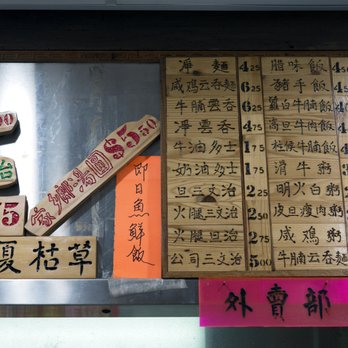 淨麵 4 25
咸鸡云吞 6 25
牛腩云吞 6 25
淨雲吞 4 75
牛油多士 1 75
奶油多士 1 75
旦三文治 2 25
火腿三文治 2 50
火腿旦治 2 75
公司三文治 5 00
腊味飯
豬手飯
蘿白牛腩飯
咼旦牛肉飯
柱候牛腩飯
滑牛粥
明火白粥
皮旦瘦肉粥
咸鸡粥
牛腩云吞麵
即日魚鮮飯
夏枯草
治
5
外賣部